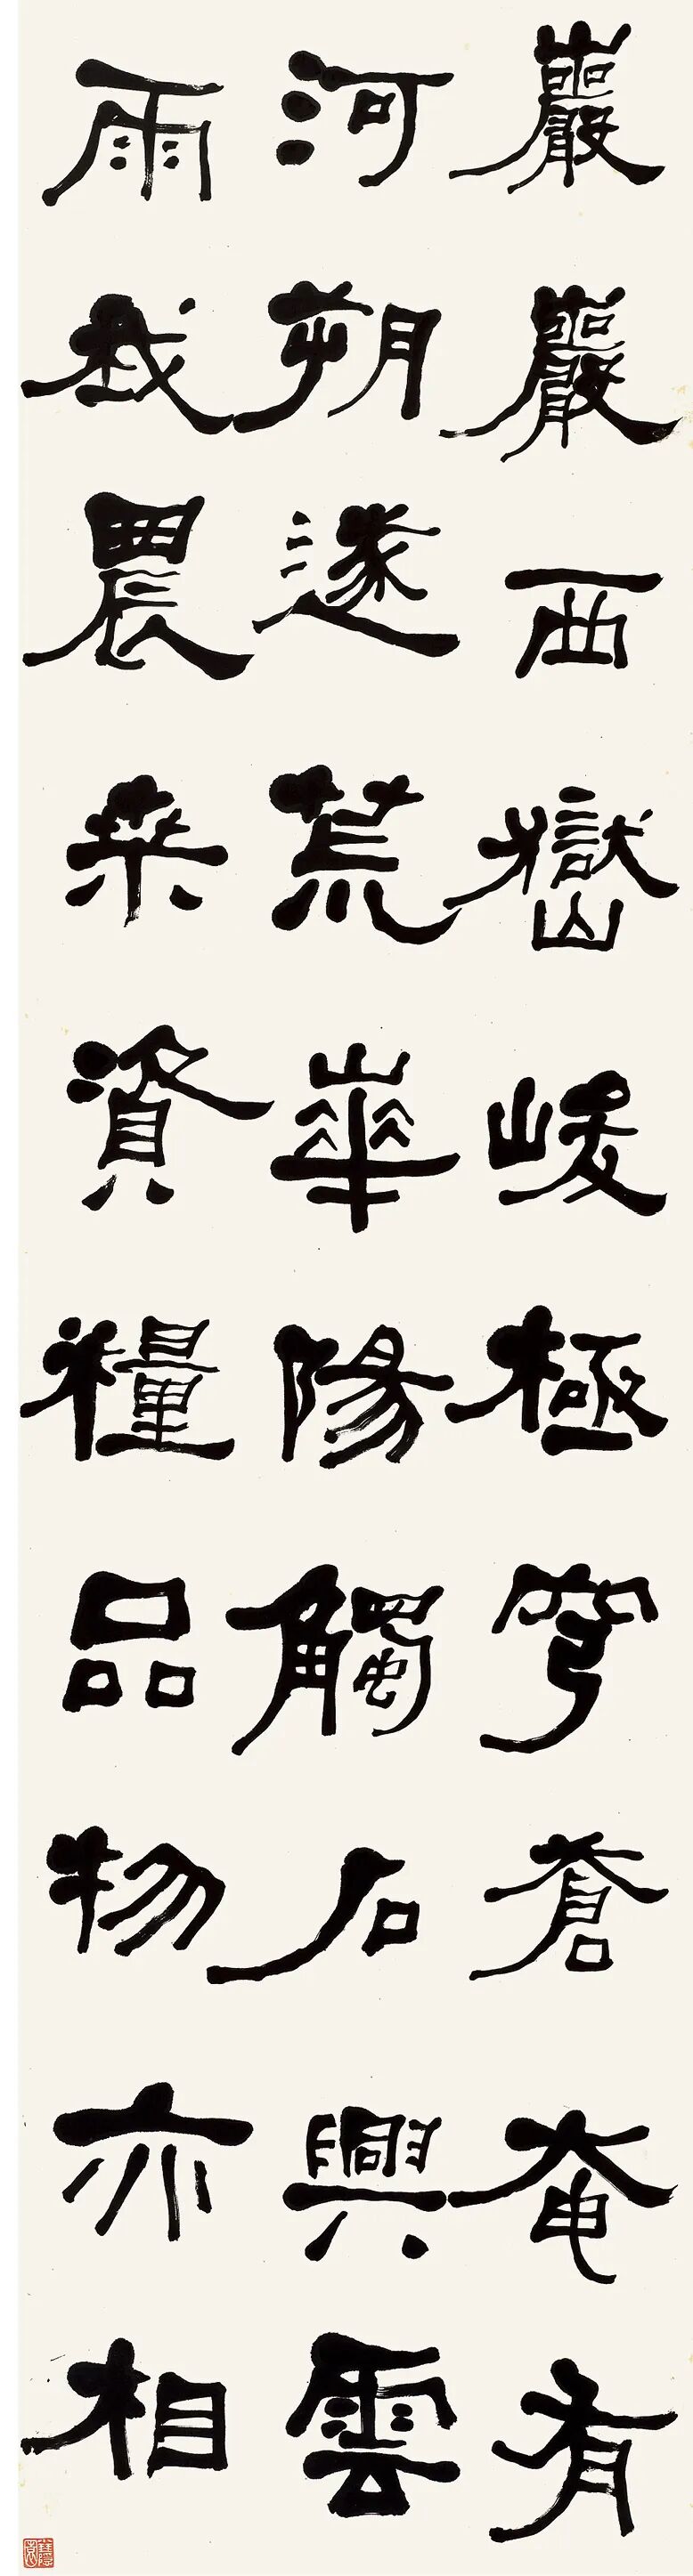 巖巖西嶽峻極穹蒼奄有
河朔遂荒華陽觸石興雲
雨我農桒資糧品物亦相